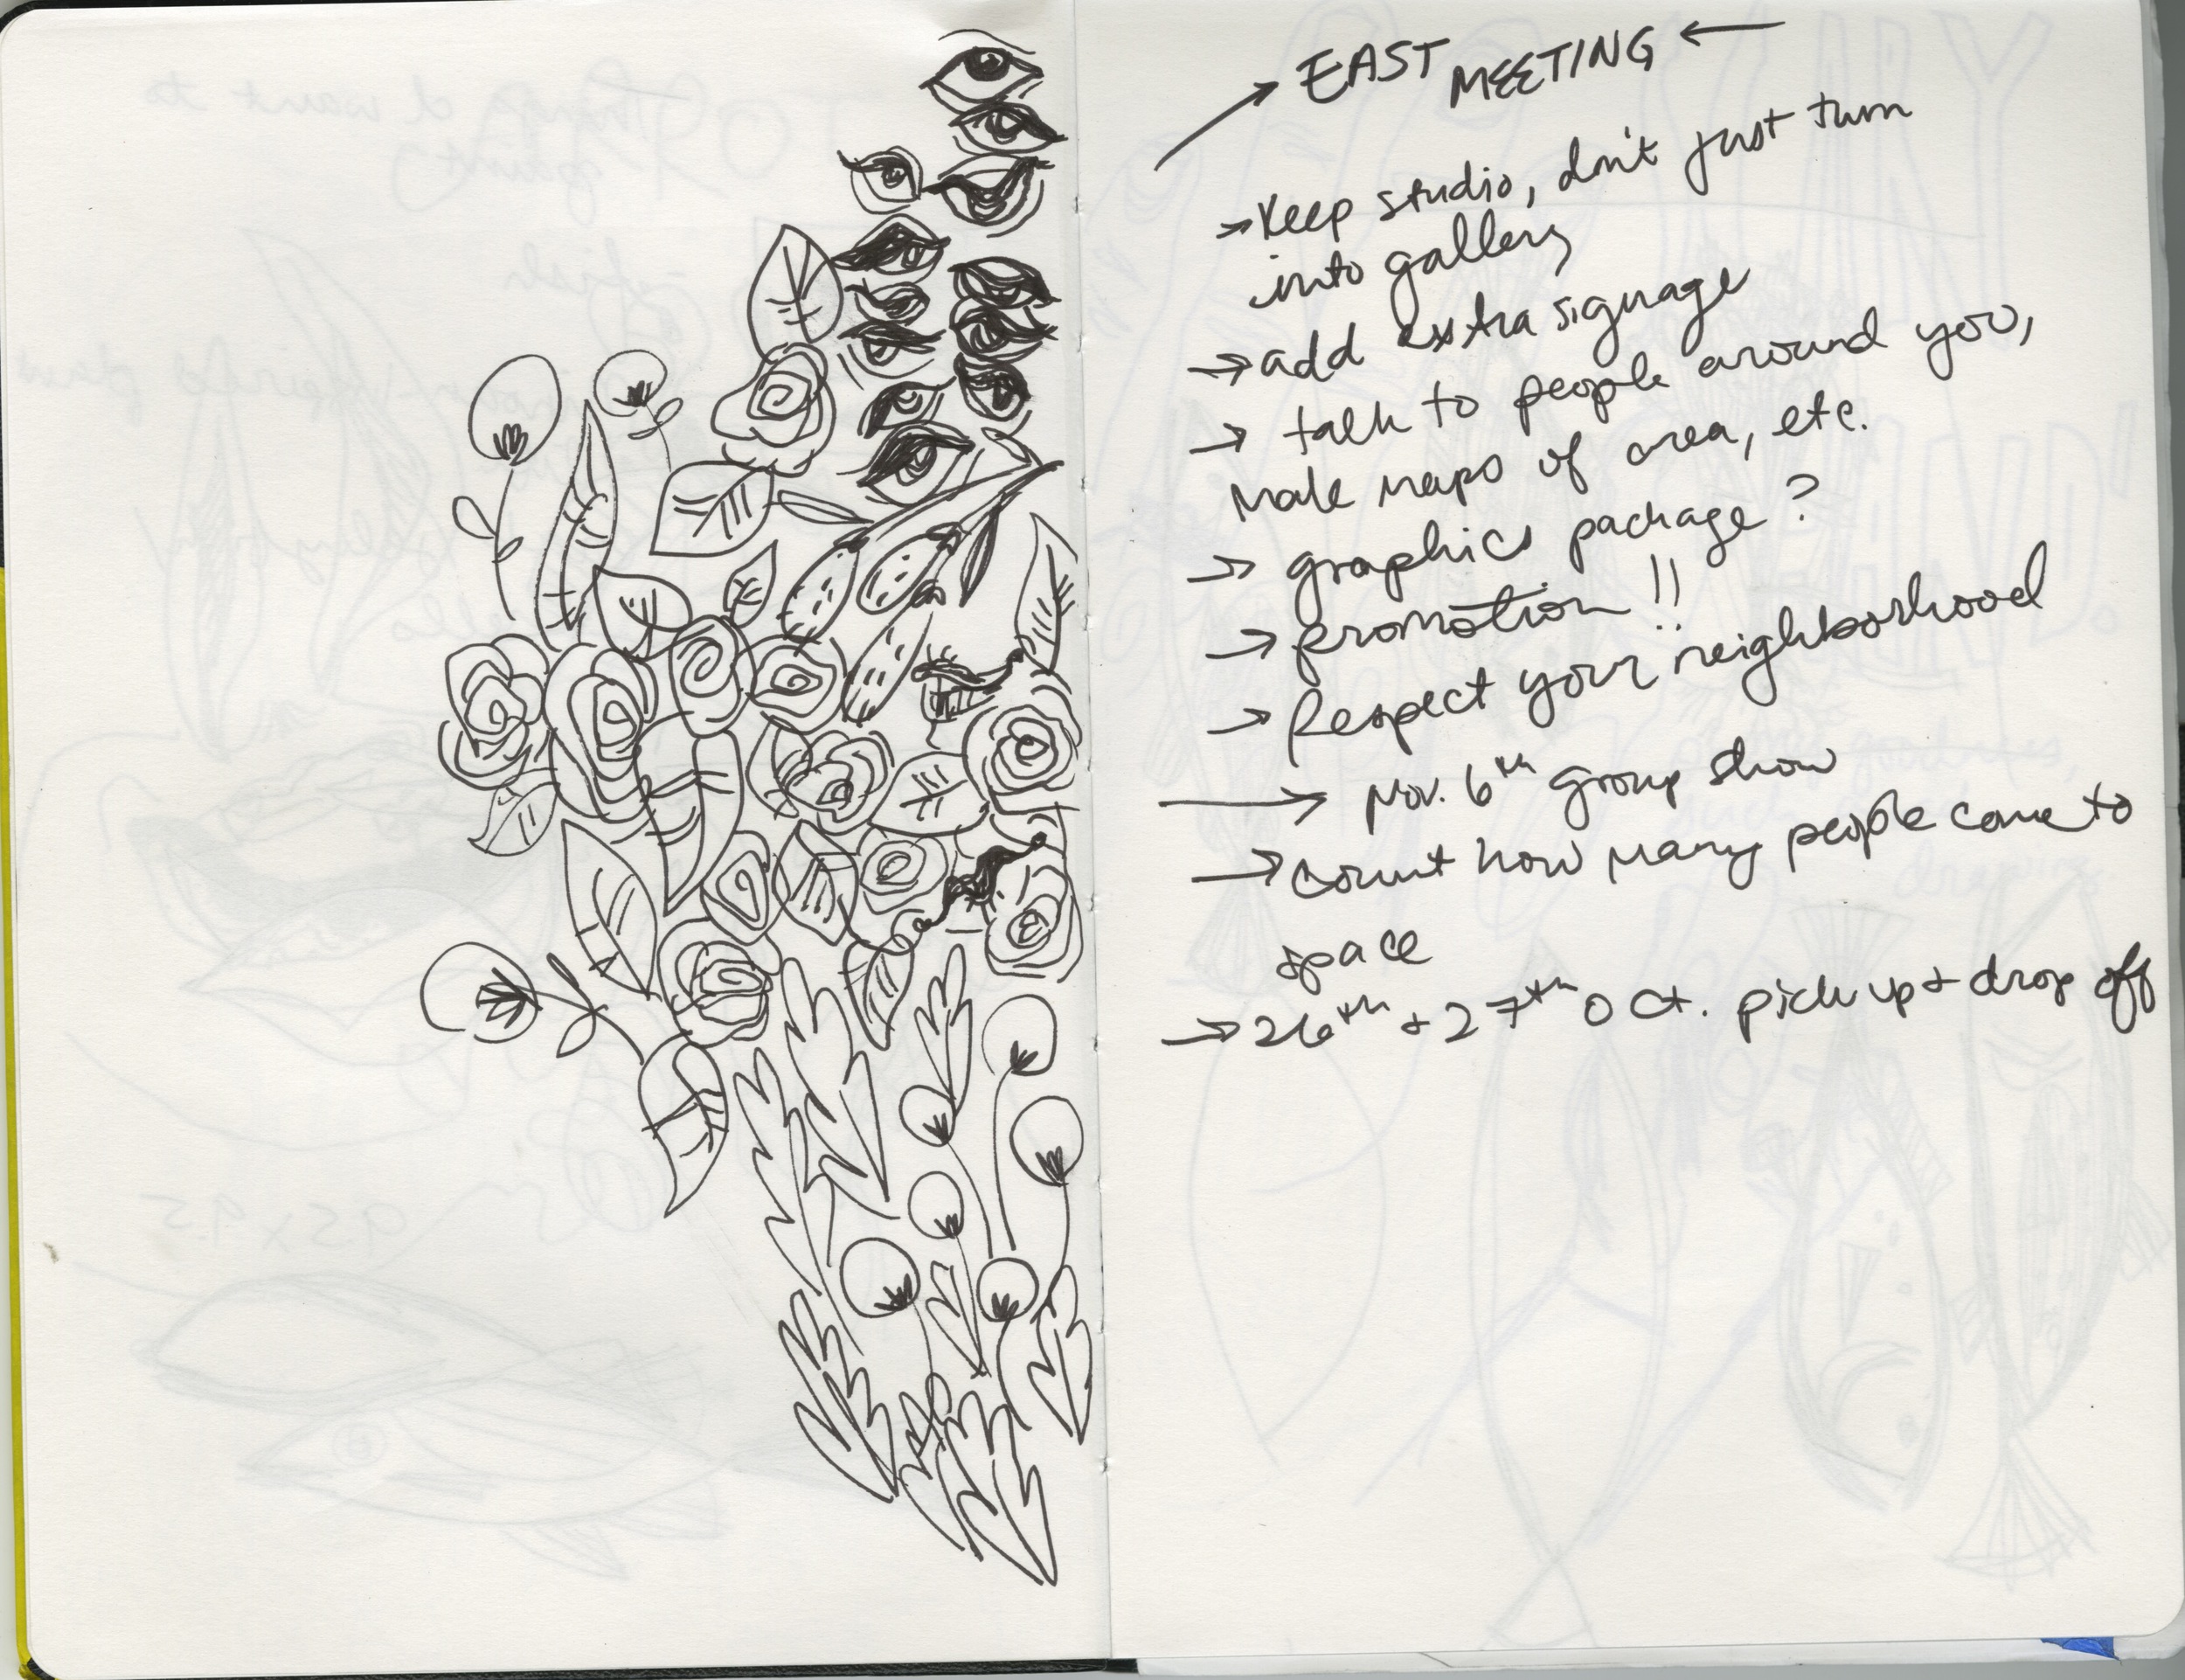 → EAST MEETING ←
→ Keep studio, don't just turn
into gallery
→ add extra signage
→ talk to people around you,
make maps of area, etc.
→ graphics package?
→ promotion!!
→ Respect your neighborhood
→ Nov. 6th group show
→ count how many people come to
space
→ 26th + 27th Oct. pick up + drop off
Things I want to
paint
fish
9.5 x 9.5